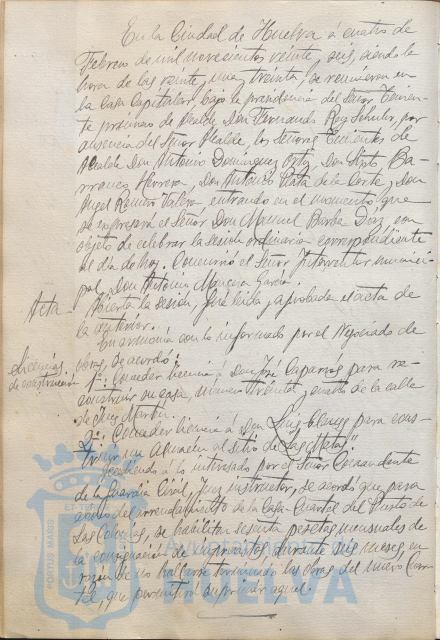 En la Ciudad de Huelva á cuatro de
Febrero de mil novecientos veinte y seis, siendo la
hora de las veinte, una, treinta, se reunieron en
la Casa Capitular, bajo la presidencia del Señor Tenien-
te primero de Alcalde Don Fernando Rey Schulz, por
ausencia del Señor Alcalde, los Señores Tenientes de
Alcalde Don Antonio Domínguez Ortiz, Don Sixto Ba-
rranco Herrera, Don Antonio Plata de la Corte, y Don
Angel Ramirez entrando en el momento que
se expresará el Señor Don Manuel Barba Diaz, con
objeto de celebrar la sesión ordinaria correspondiente
al dia de hoy. Concurrió el Señor Interventor munici-
pal Don Antonio García.
Acta Abierta la sesión, fue leida y aprobada el acta de
la anterior.
En armonía con lo informado por el Negociado de
Licencias obras, se acordó:
de construccion 1º: Conceder licencia á Don José Caparrós para re-
construir su casa, número treinta y cuatro de la calle
de
2º: Conceder licencia á Don Luis para cons-
truir un Almacén al sitio de "Las Metas"
Accediendo á lo interesado por el Señor Comandante
de la Guardia Civil, Juez instructor, se acordó que para
del arrendamiento de la Casa-Cuartel del Puesto de
Las Colonias, se habiliten sesenta pesetas mensuales de
la consignación de imprevistos durante seis meses, en
razón de no hallarse terminadas las obras del nuevo Cuar-
tel, que permitirá suprimir aquel.
PORTUS MARIS
ET TER
HUELVA